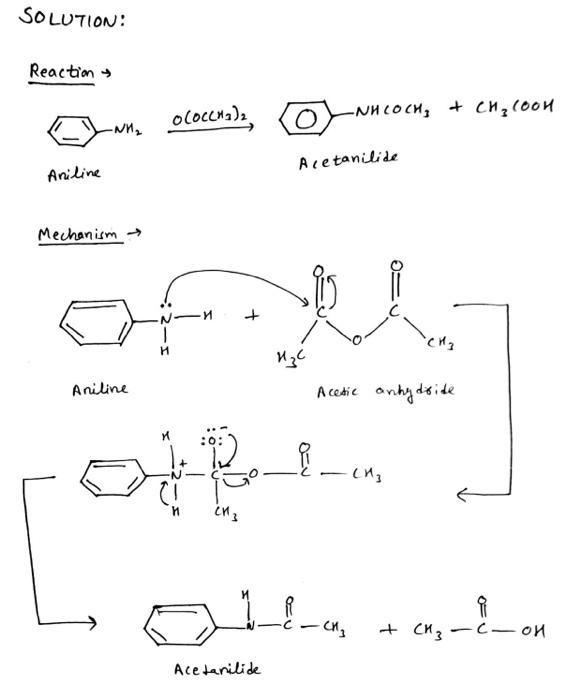 SOLUTION:
Reaction →
-NH₂ O(OCCH₃)₂ -NHCOCH₃ + CH₃COOH
Aniline
Acetanilide
Mechanism →
O O
N̈ - H + C C
H H₃C O CH₃
Aniline Acetic anhydride
H :Ö:⁻ O
N⁺ - C - O - C - CH₃
H CH₃
H O O
N - C - CH₃ + CH₃ - C - OH
Acetanilide